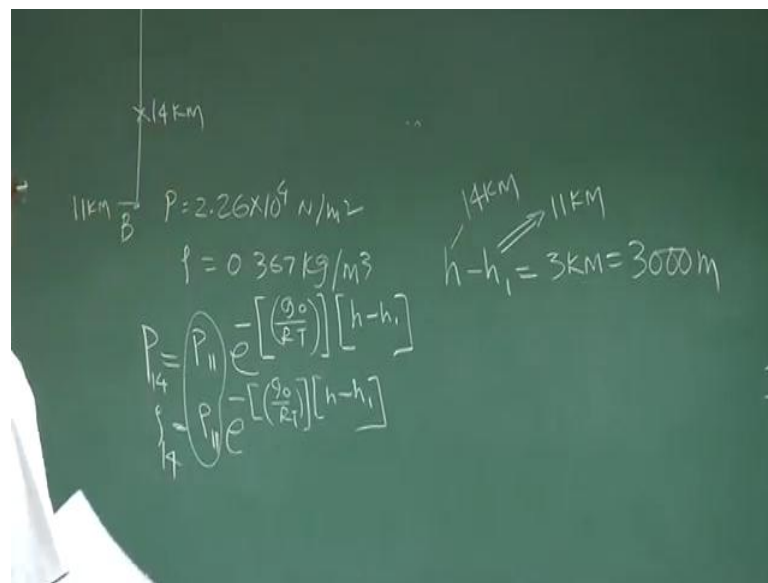 ×14KM
11KM B P=2.26×10⁴ N/m²
ρ=0.367kg/m³
P₁₄=P₁₁e^-[(g₀/RT)][h-h₁]
ρ₁₄=ρ₁₁e^-[(g₀/RT)][h-h₁]
14KM 11KM
h-h₁=3KM=3000m